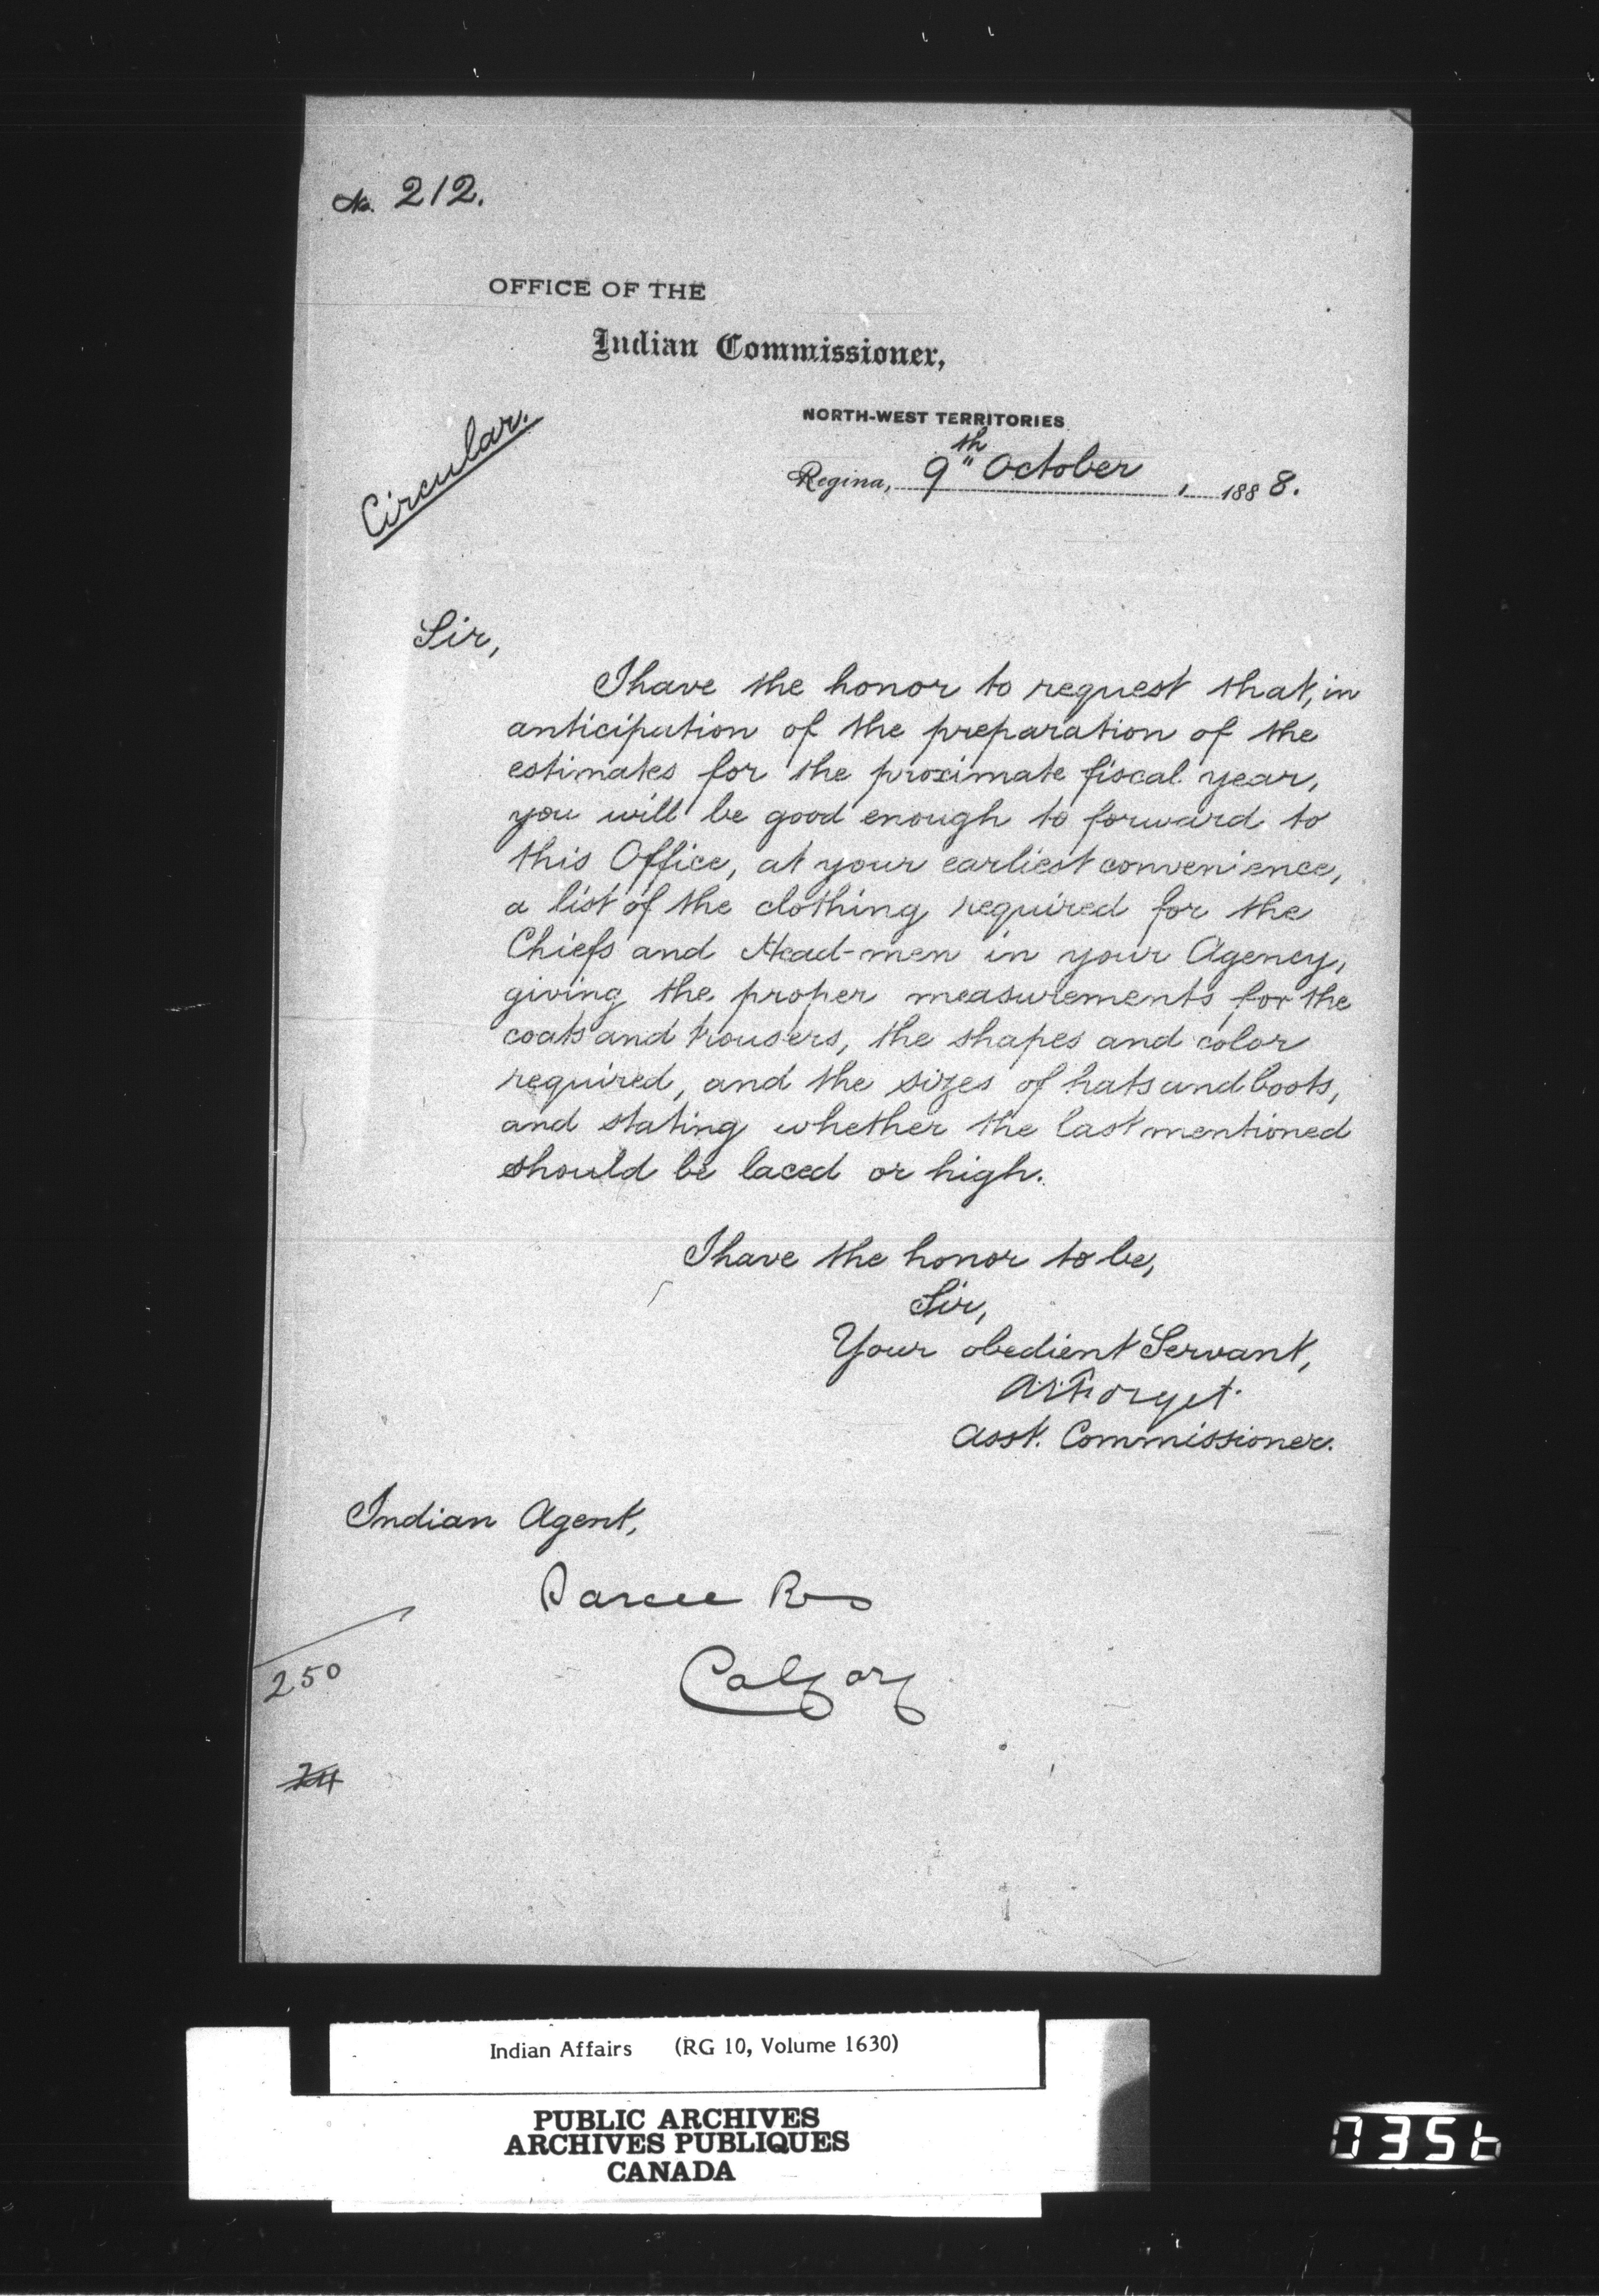 No. 212.
OFFICE OF THE
Indian Commissioner,
NORTH-WEST TERRITORIES
Circular.
Regina, 9th October, 1888.
Sir,
I have the honor to request that, in
anticipation of the preparation of the
estimates for the proximate fiscal year,
you will be good enough to forward to
this Office, at your earliest convenience,
a list of the clothing required for the
Chiefs and Head-men in your Agency,
giving the proper measurements for the
coats and trousers, the shapes and color
required, and the sizes of hats and boots,
and stating whether the last mentioned
should be laced or high.
I have the honor to be,
Sir,
Your obedient Servant,
A. E. Forget.
Asst. Commissioner.
Indian Agent,
Sarcee Res
Calgary
250
Indian Affairs (RG 10, Volume 1630)
PUBLIC ARCHIVES
ARCHIVES PUBLIQUES
CANADA
0356